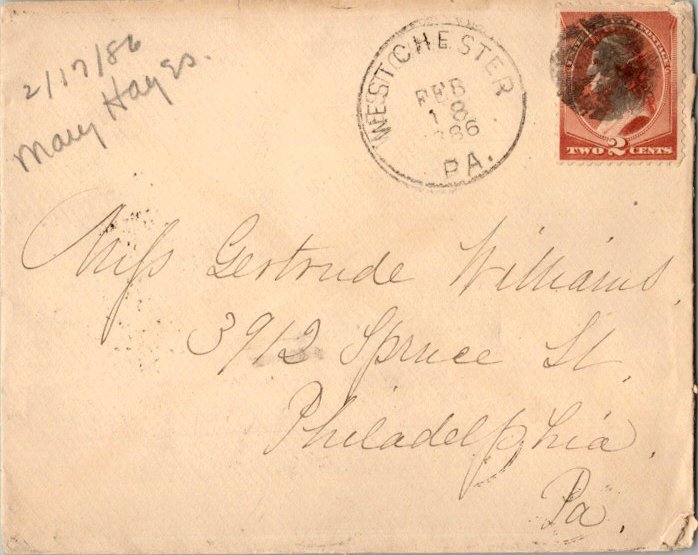 2/17/86
Mary Hayes.
WESTCHESTER
FEB
18
1886
PA.
TWO 2 CENTS
Miss Gertrude Williams,
3912 Spruce St.
Philadelphia,
Pa.